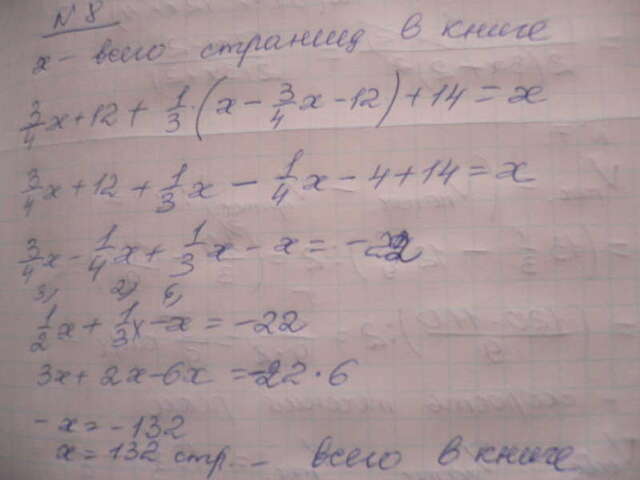 N 8
x - всего страниц в книге
3/4 x + 12 + 1/3 · (x - 3/4 x - 12) + 14 = x
3/4 x + 12 + 1/3 x - 1/4 x - 4 + 14 = x
3/4 x - 1/4 x + 1/3 x - x = -22
3) 2) 6)
1/2 x + 1/3 x - x = -22
3x + 2x - 6x = -22 · 6
- x = - 132
x = 132 стр. - всего в книге